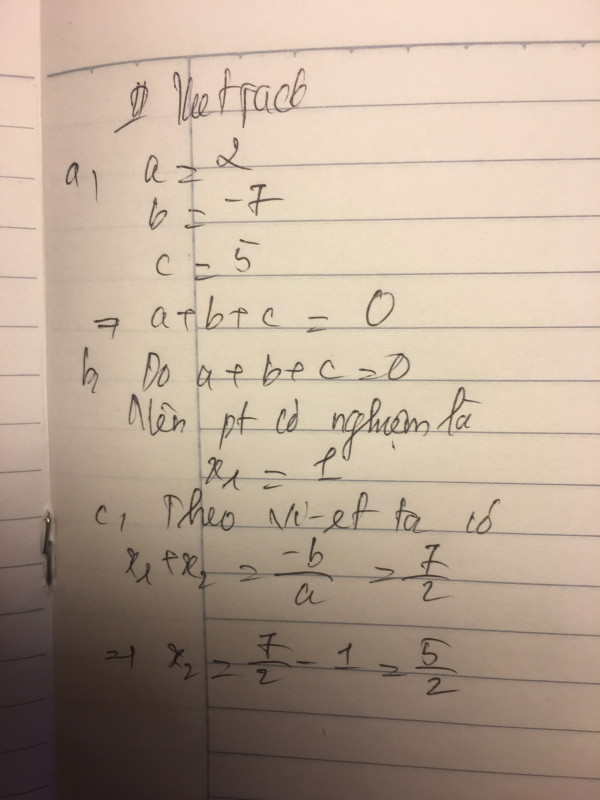 II
a, a = 2
b = -7
c = 5
⇒ a + b + c = 0
b, Do a + b + c = 0
Nên pt có nghiệm là
x₁ = 1
c, Theo Vi-et ta có
x₁ + x₂ = -b/a = 7/2
⇒ x₂ = 7/2 - 1 = 5/2